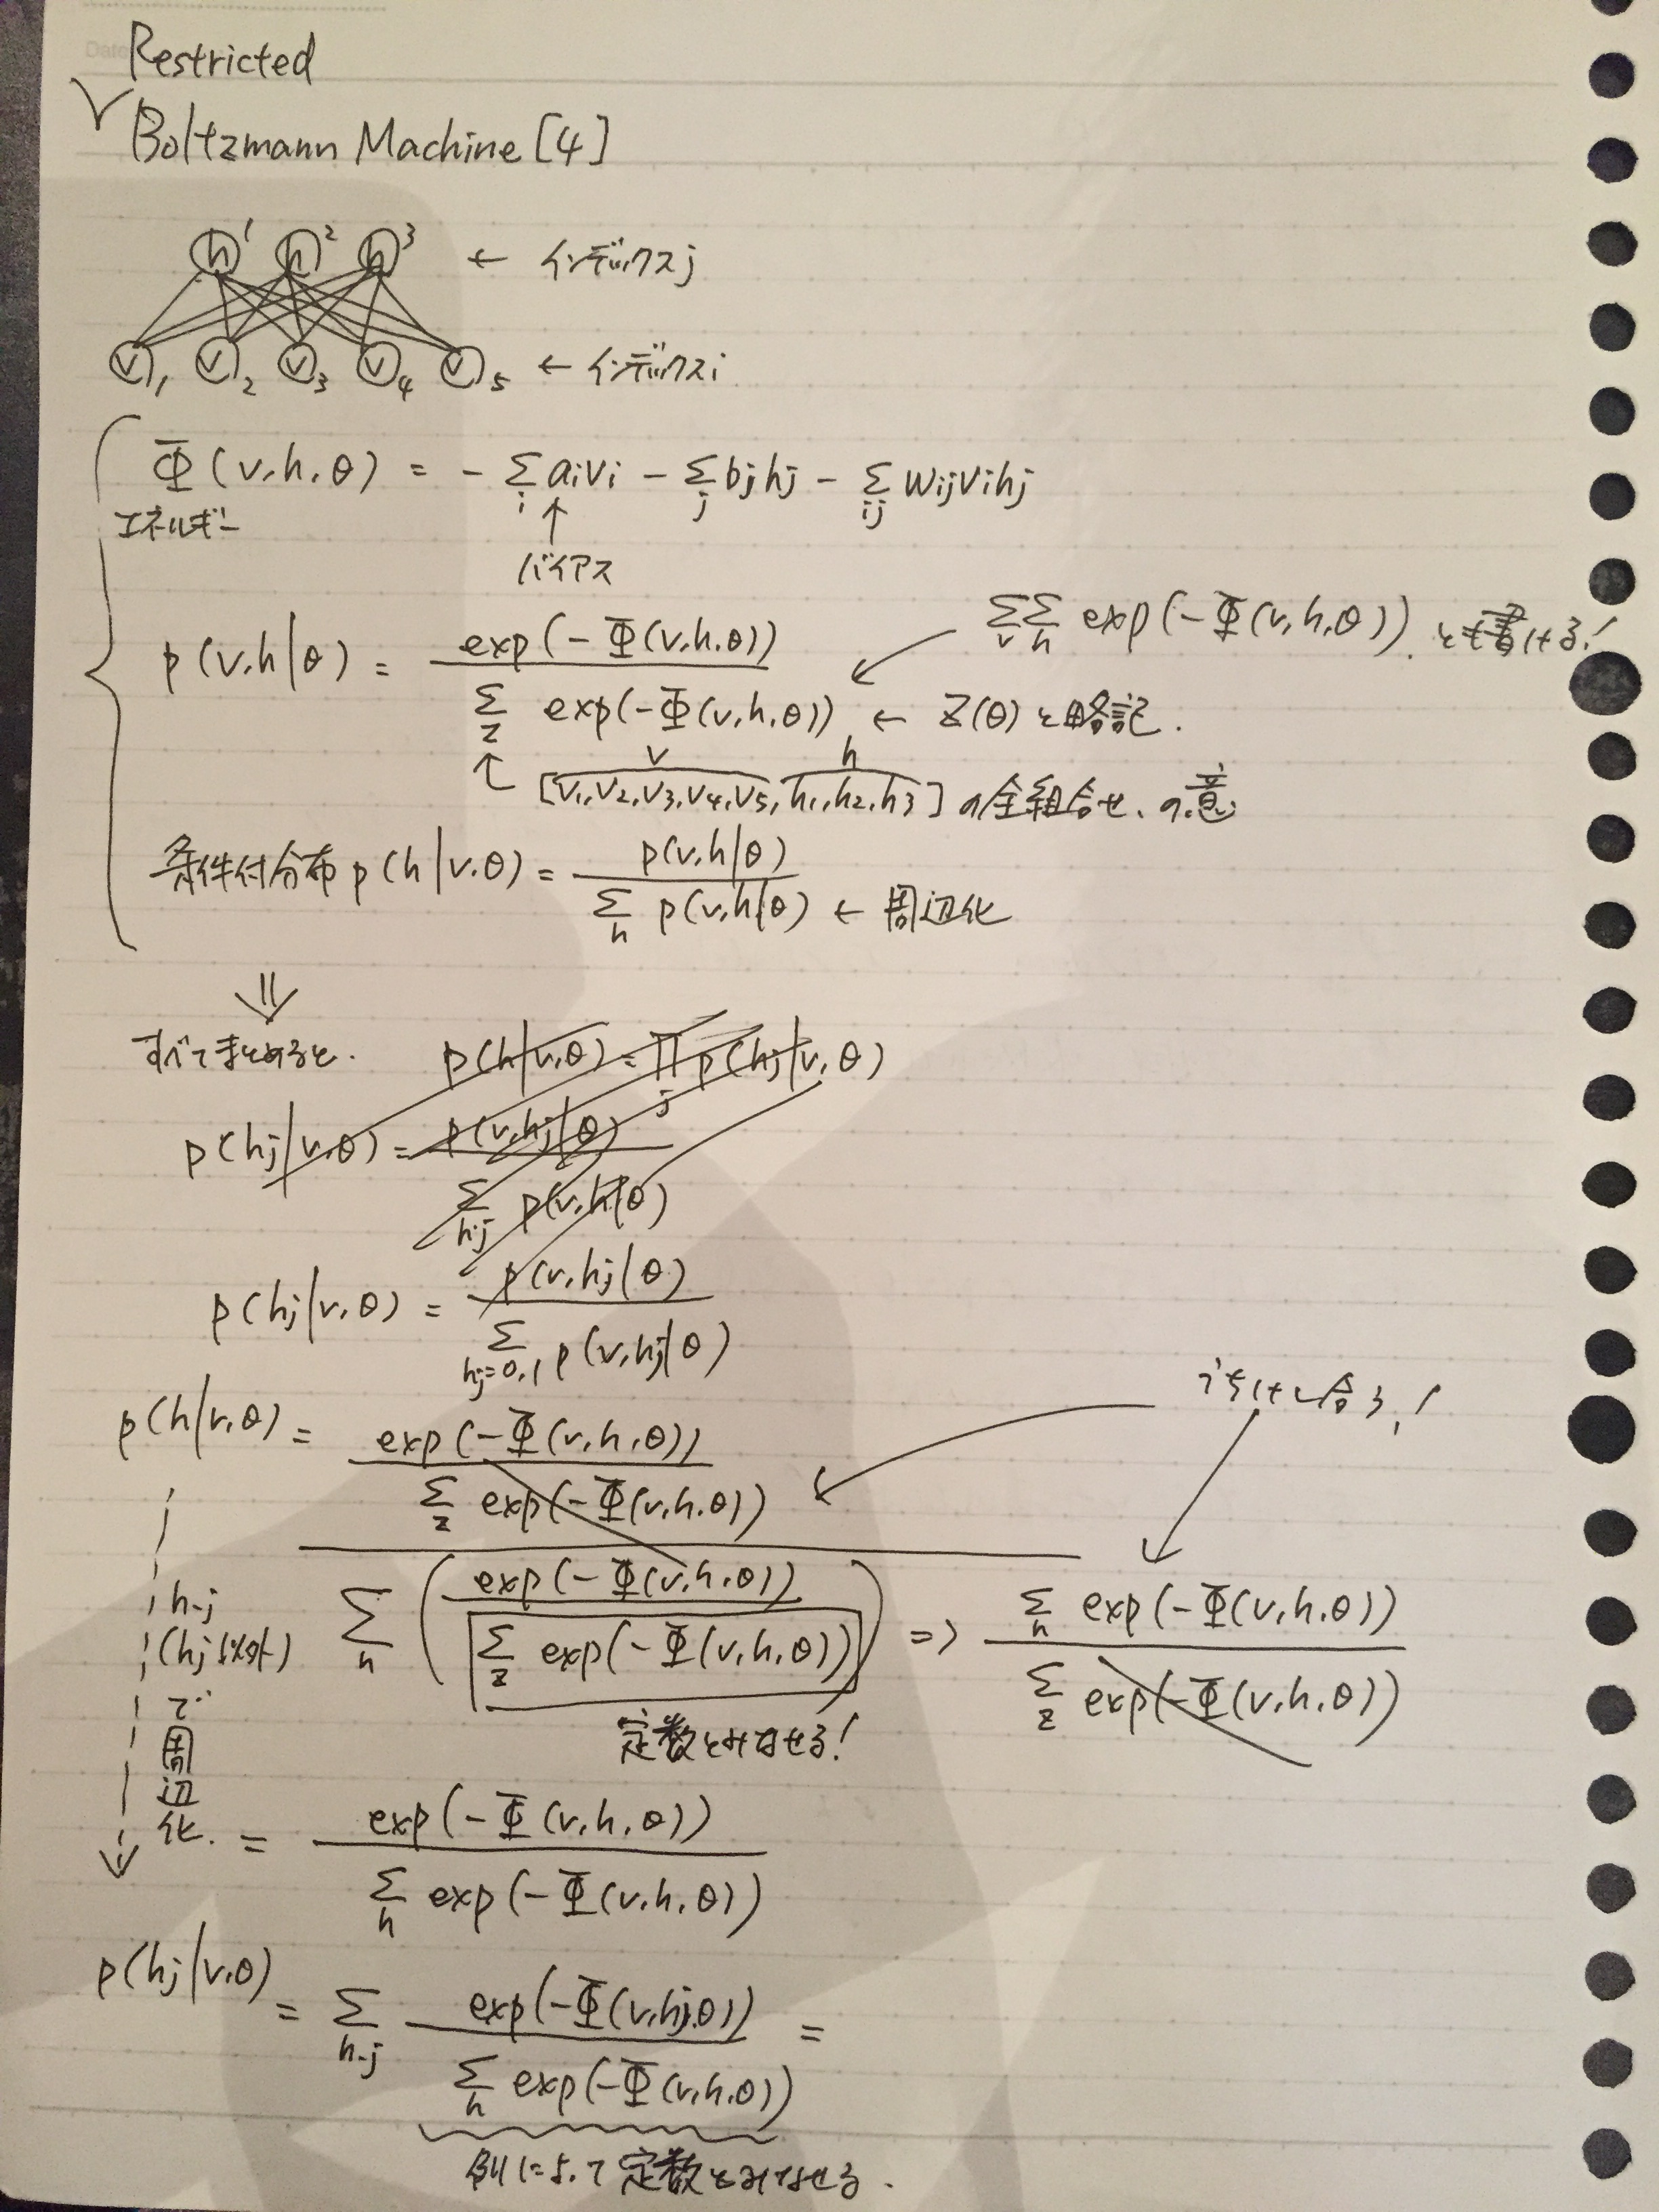 Date
Restricted
Boltzmann Machine [4]
h1 h2 h3 ← インデックスj
v1 v2 v3 v4 v5 ← インデックスi
Φ(v,h,θ) = - Σ_i aivi - Σ_j bjhj - Σ_ij wijvihj
エネルギー
↑
バイアス
Σ_v Σ_h exp(-Φ(v,h,θ)). とも書ける!
p(v,h|θ) = exp(-Φ(v,h,θ)) / Σ_z exp(-Φ(v,h,θ)) ← Z(θ)と略記.
v h
↑ [v1,v2,v3,v4,v5,h1,h2,h3] の全組合せ、の意
条件付分布 p(h|v,θ) = p(v,h|θ) / Σ_h p(v,h|θ) ← 周辺化
⇓
すべてまとめると. p(h|v,θ) = Π_j p(hj|v,θ)
p(hj|v,θ) = p(v,hj|θ) / Σ_h-j p(v,h|θ)
p(hj|v,θ) = p(v,hj|θ) / Σ_hj=0,1 p(v,hj|θ)
うちけし合う!
p(h|v,θ) = exp(-Φ(v,h,θ)) / Σ_z exp(-Φ(v,h,θ))
Σ_h ( exp(-Φ(v,h,θ)) / Σ_z exp(-Φ(v,h,θ)) ) => Σ_h exp(-Φ(v,h,θ)) / Σ_z exp(-Φ(v,h,θ))
定数とみなせる!
h-j
(hj以外)
で
周
辺
化.
= exp(-Φ(v,h,θ)) / Σ_h exp(-Φ(v,h,θ))
p(hj|v,θ) = Σ_h-j exp(-Φ(v,hj,θ)) / Σ_h exp(-Φ(v,h,θ)) =
例によって定数とみなせる.